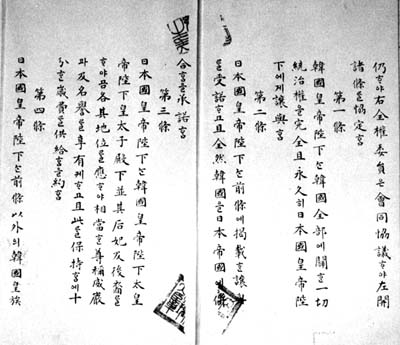 仍ᄒᆞ야右全權委員은會同協議ᄒᆞ야左開
諸條를協定홈
第一條
韓國皇帝陛下는韓國全部에關ᄒᆞᆫ一切
統治權을完全且永久히日本國皇帝陛
下에게讓與홈
第二條
日本國皇帝陛下는前條에揭載ᄒᆞᆫ讓
를受諾ᄒᆞ고且全然韓國을日本帝國에併
合홈을承諾홈
第三條
日本國皇帝陛下는韓國皇帝陛下太皇
帝陛下皇太子殿下並其后妃及後裔로
ᄒᆞ야곰各其地位를應ᄒᆞ야相當ᄒᆞᆫ尊稱威嚴
과及名譽를享有케ᄒᆞ고且此를保持홈에十
分ᄒᆞᆫ歲費를供給홈을約홈
第四條
日本國皇帝陛下는前條以外의韓國皇族